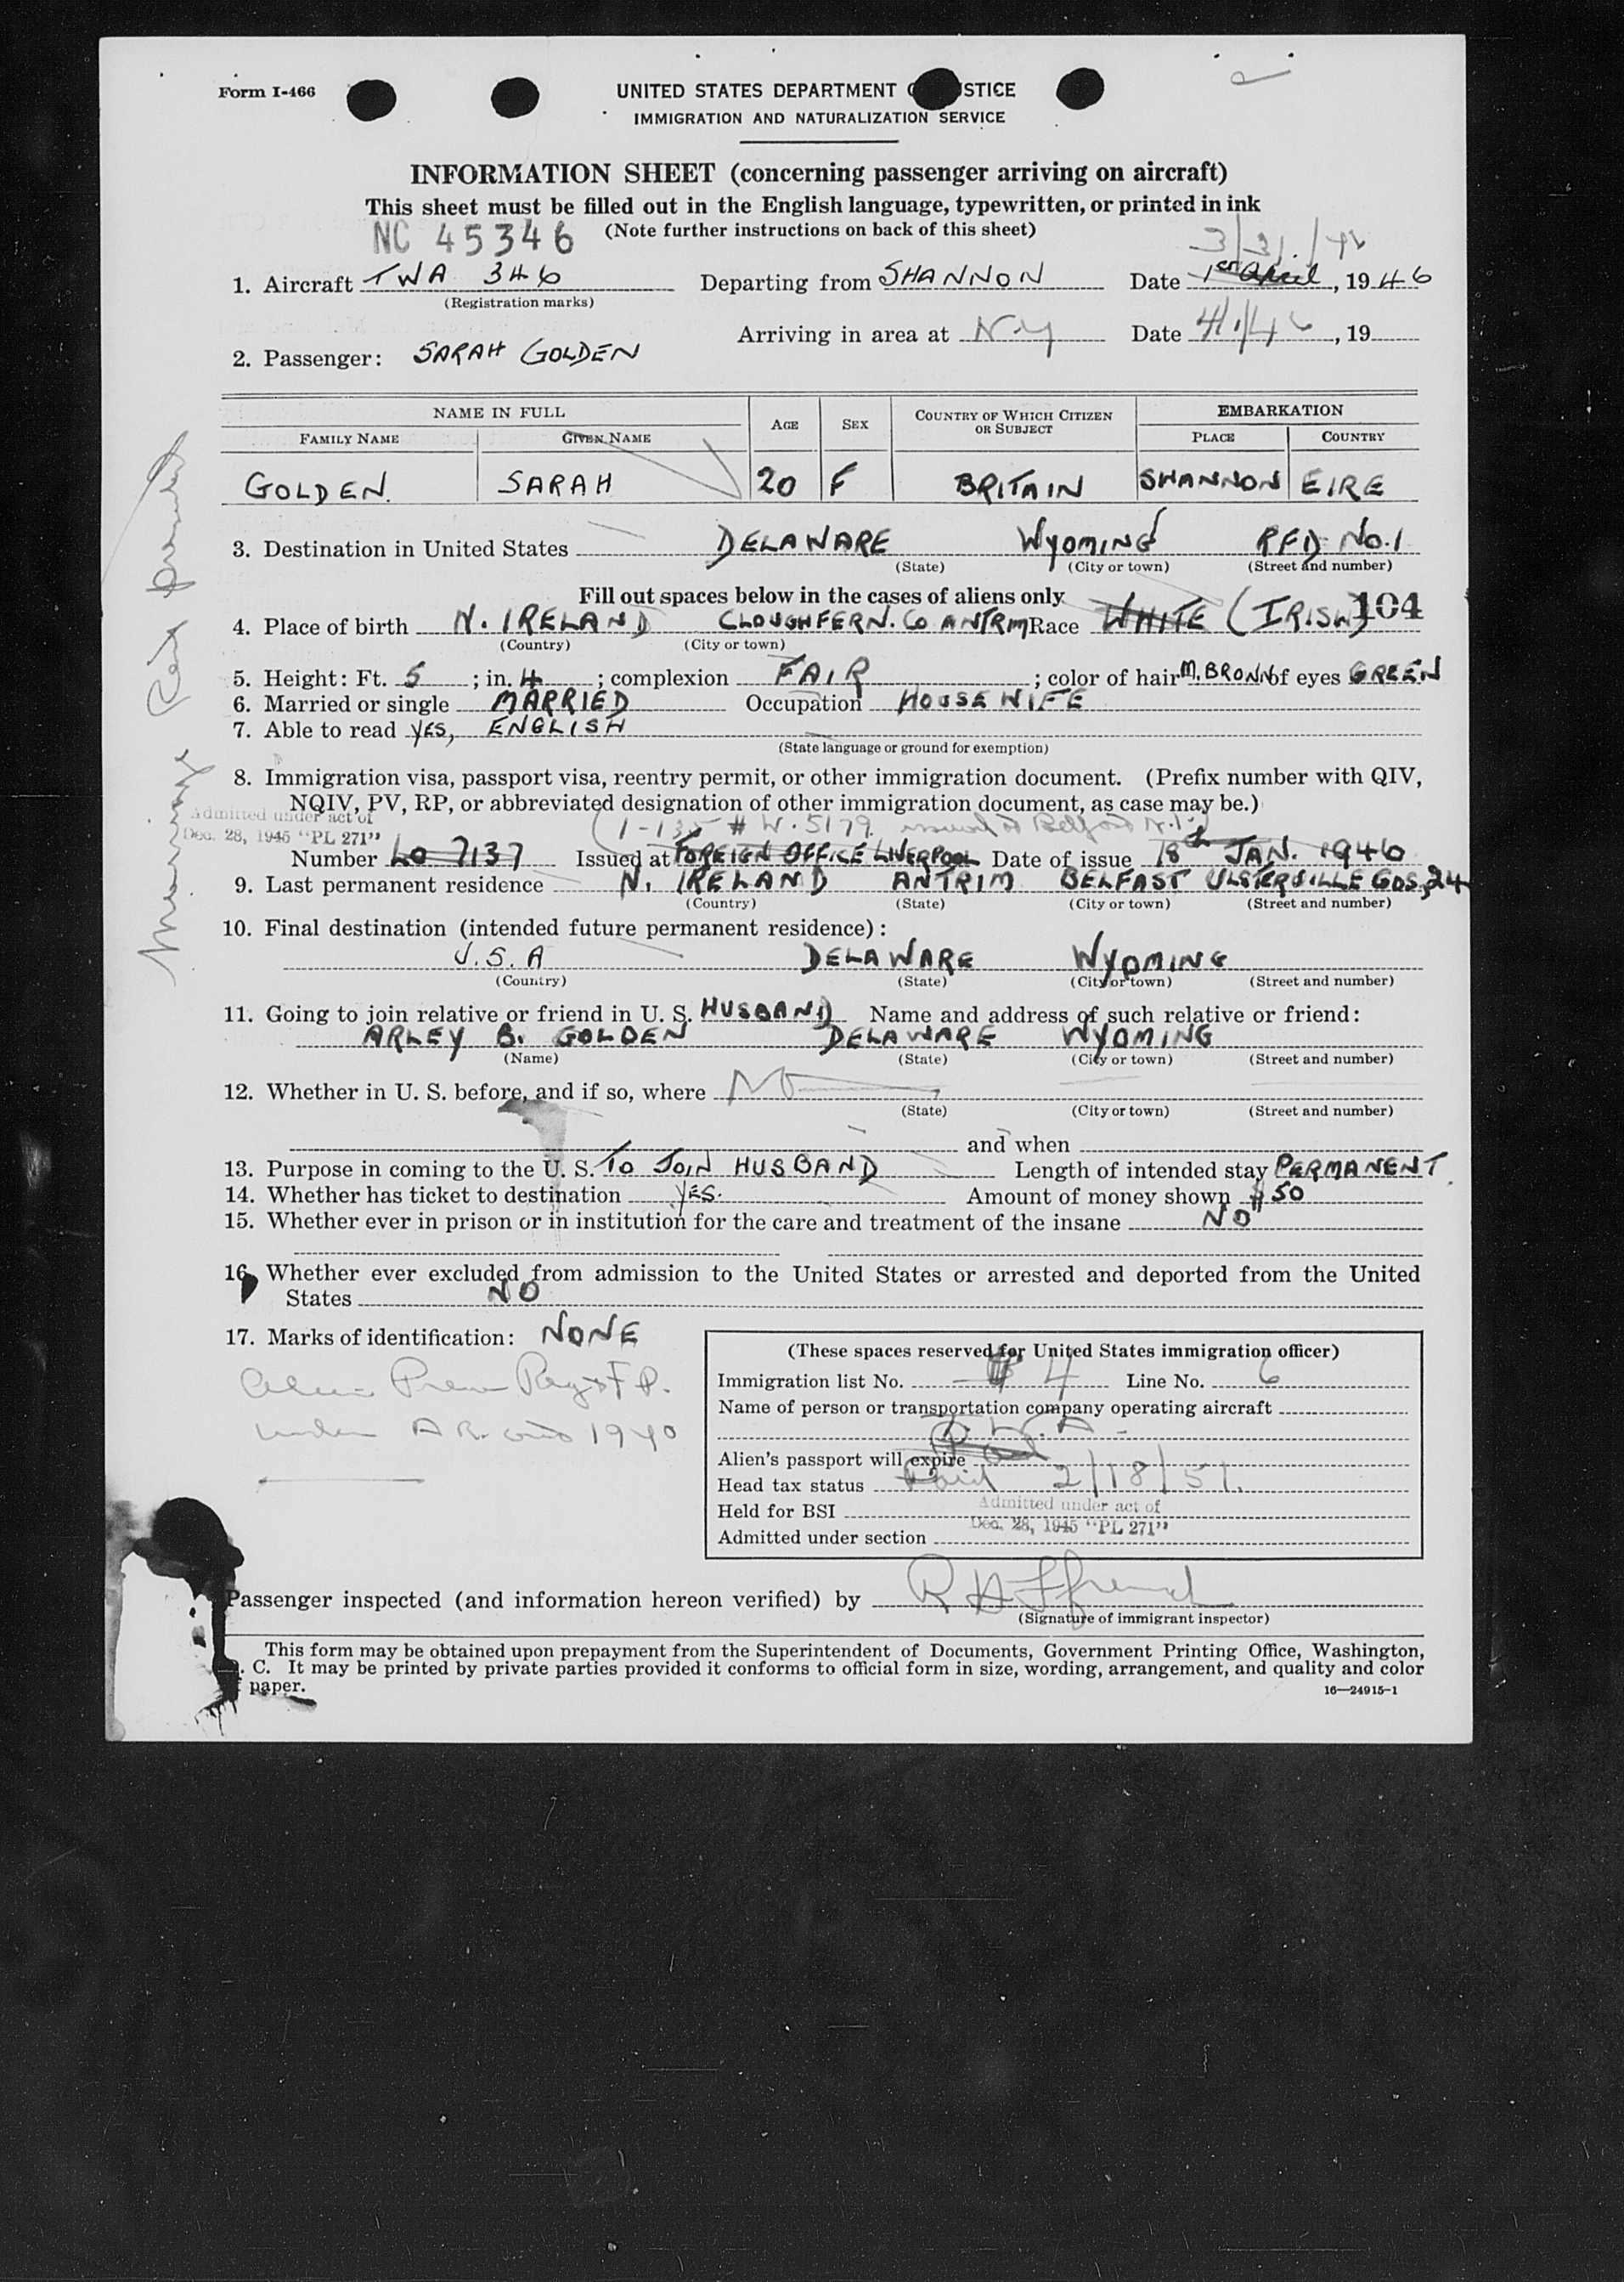 Form I-466
UNITED STATES DEPARTMENT STICE
IMMIGRATION AND NATURALIZATION SERVICE
INFORMATION SHEET (concerning passenger arriving on aircraft)
This sheet must be filled out in the English language, typewritten, or printed in ink
NC 45346 (Note further instructions on back of this sheet)
3/31/46
1. Aircraft TWA 346 Departing from SHANNON Date 1st April, 1946
(Registration marks)
Arriving in area at N.Y Date 4/1/46, 19
2. Passenger: SARAH GOLDEN
NAME IN FULL AGE SEX COUNTRY OF WHICH CITIZEN OR SUBJECT EMBARKATION
FAMILY NAME GIVEN NAME PLACE COUNTRY
GOLDEN. SARAH 20 F BRITAIN SHANNON EIRE
3. Destination in United States DELAWARE WYOMING RFD No.1
(State) (City or town) (Street and number)
Fill out spaces below in the cases of aliens only
104
4. Place of birth N. IRELAND CLOUGHFERN. Co ANTRIM Race WHITE (IRISH)
(Country) (City or town)
5. Height: Ft. 5 ; in. 4 ; complexion FAIR ; color of hair M. BROWN of eyes GREEN
6. Married or single MARRIED Occupation HOUSEWIFE
7. Able to read YES, ENGLISH
(State language or ground for exemption)
8. Immigration visa, passport visa, reentry permit, or other immigration document. (Prefix number with QIV,
NQIV, PV, RP, or abbreviated designation of other immigration document, as case may be.)
Admitted under act of
Dec. 28, 1945 "PL 271"
(I-135 # W. 5179 issued at Belfast N.I.)
Number LO 7137 Issued at FOREIGN OFFICE LIVERPOOL Date of issue 18th JAN. 1946
9. Last permanent residence N. IRELAND ANTRIM BELFAST ULSTERVILLE GDS, 24
(Country) (State) (City or town) (Street and number)
10. Final destination (intended future permanent residence):
U.S.A DELAWARE WYOMING
(Country) (State) (City or town) (Street and number)
11. Going to join relative or friend in U. S. HUSBAND Name and address of such relative or friend:
ARLEY B. GOLDEN DELAWARE WYOMING
(Name) (State) (City or town) (Street and number)
12. Whether in U. S. before, and if so, where NO
(State) (City or town) (Street and number)
and when
13. Purpose in coming to the U. S. TO JOIN HUSBAND Length of intended stay PERMANENT
14. Whether has ticket to destination YES. Amount of money shown $50
15. Whether ever in prison or in institution for the care and treatment of the insane NO
16. Whether ever excluded from admission to the United States or arrested and deported from the United
States NO
17. Marks of identification: NONE
(These spaces reserved for United States immigration officer)
Immigration list No. 4 Line No. 6
Name of person or transportation company operating aircraft
T.W.A.
Alien's passport will expire
Head tax status 2/18/51.
Held for BSI
Admitted under act of
Dec. 28, 1945 "PL 271"
Admitted under section
under 1940
Marriage Cert presented
Passenger inspected (and information hereon verified) by
(Signature of immigrant inspector)
This form may be obtained upon prepayment from the Superintendent of Documents, Government Printing Office, Washington,
. C. It may be printed by private parties provided it conforms to official form in size, wording, arrangement, and quality and color
paper.
16—24915-1